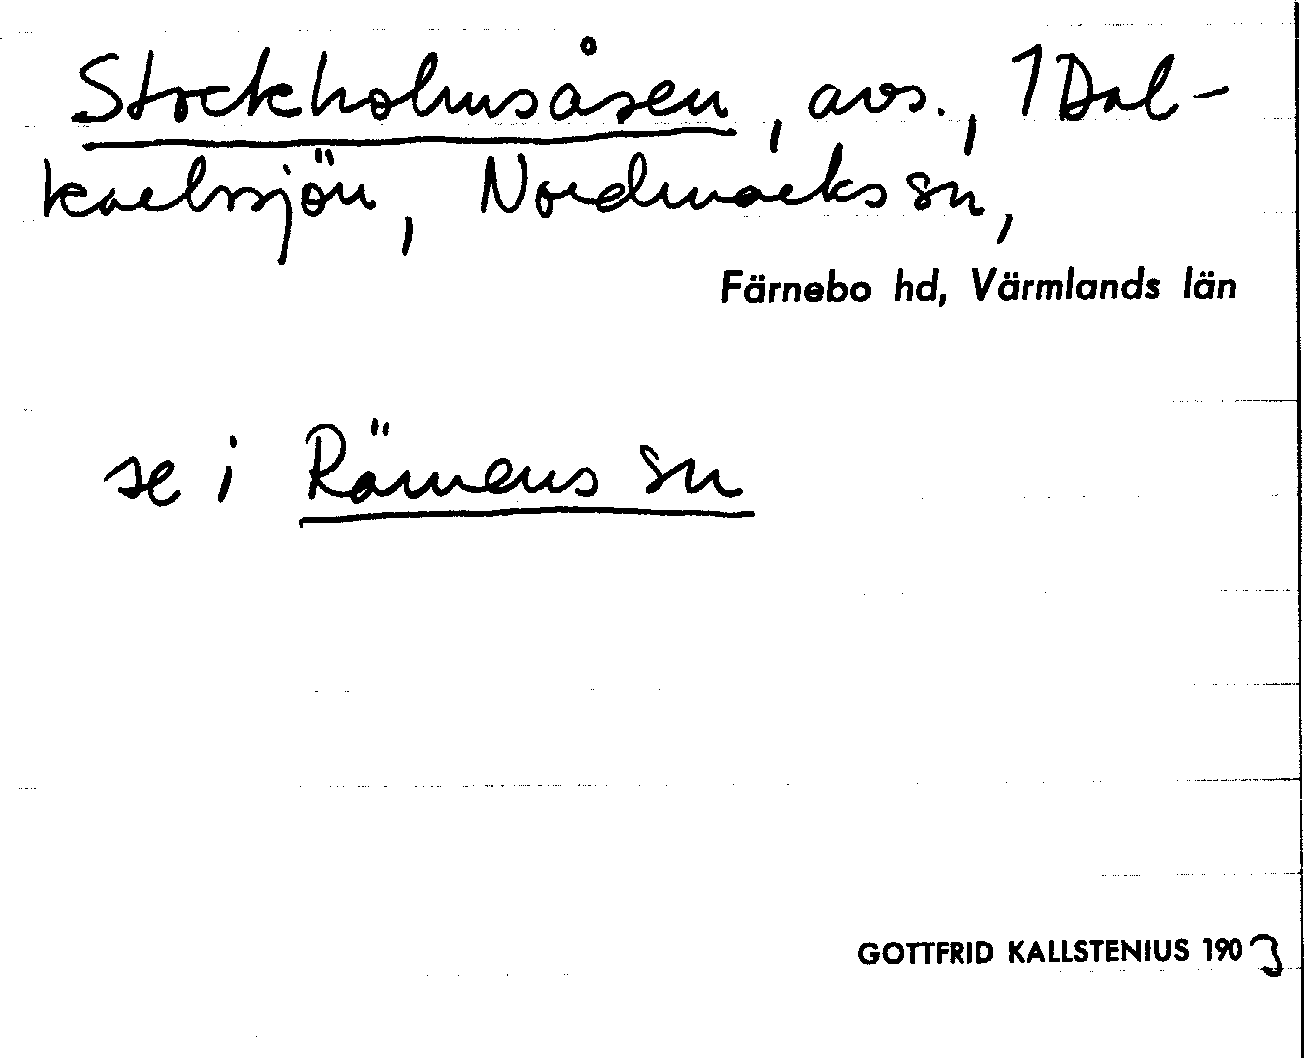 Stockholmsåsen, avs., 1 Dal-
karlssjön, Nordmarks sn,
Färnebo hd, Värmlands län
se i Rämens sn
GOTTFRID KALLSTENIUS 1903